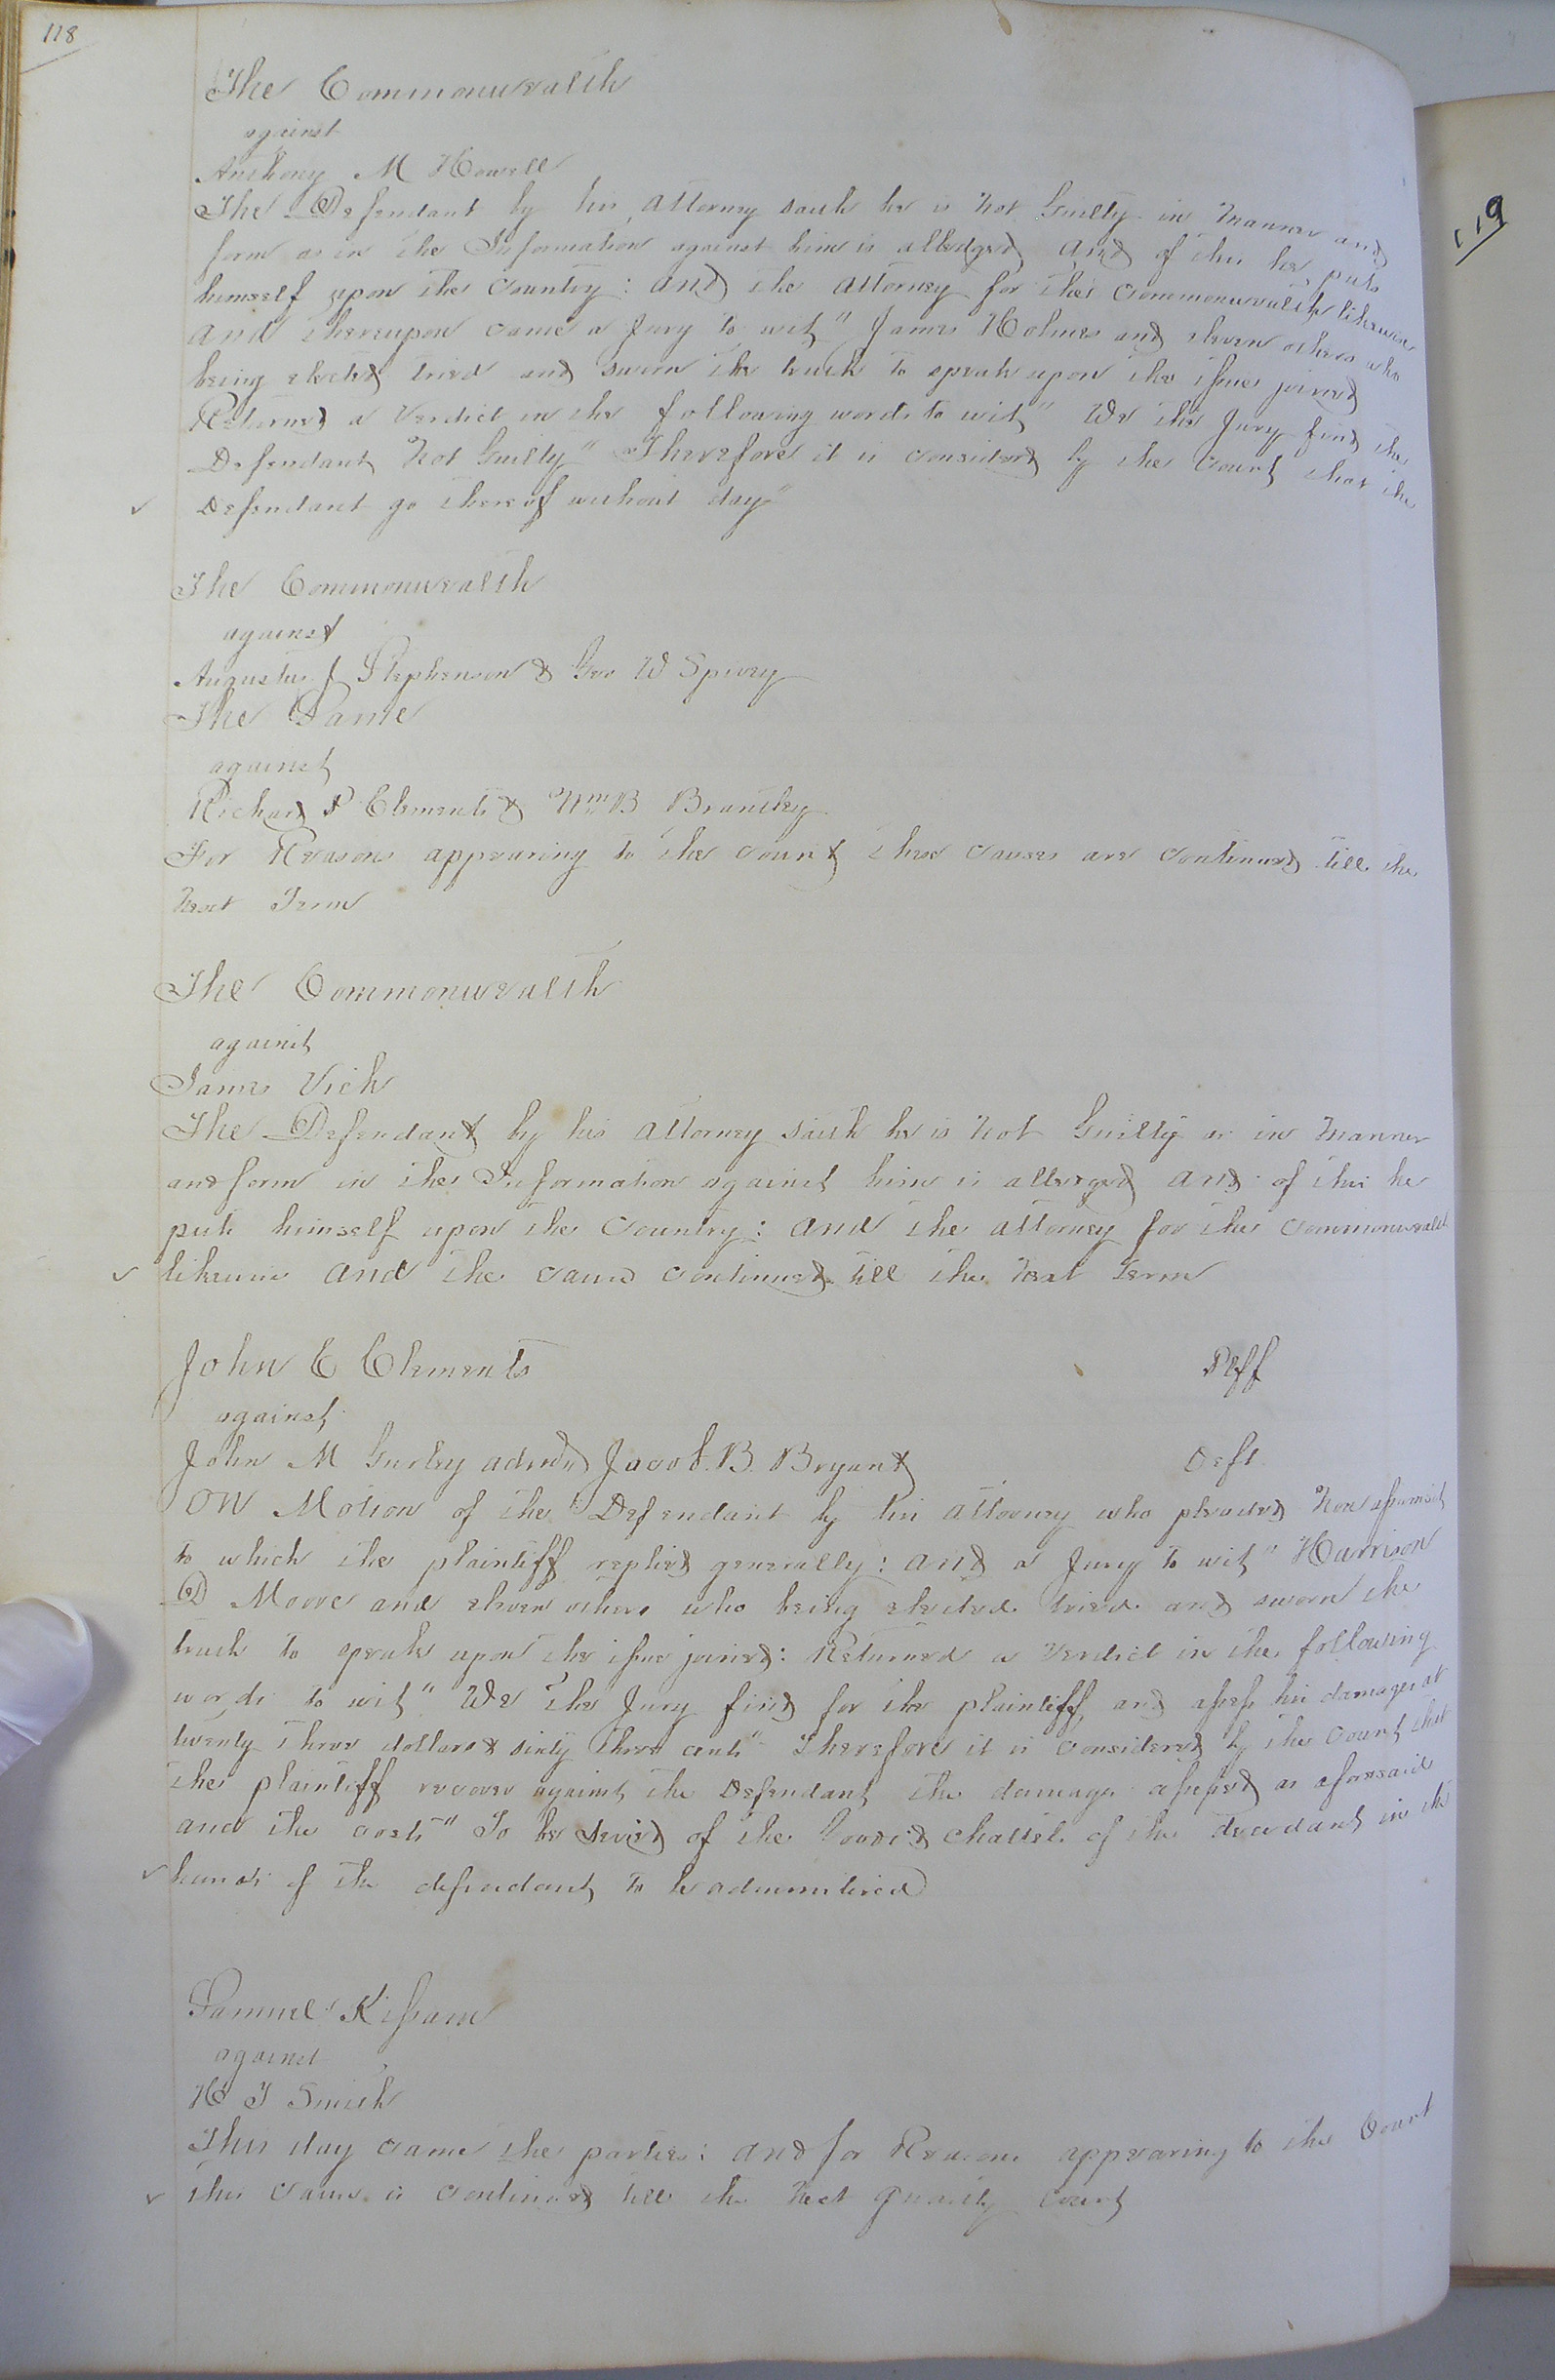 118
The Commonwealth
against
Anthony M Howell
The Defendant by his attorney saith he is not Guilty in manner and
form as in the Information against him is alledged and of this he puts
himself upon the Country: and the attorney for the Commonwealth likewise
and thereupon came a Jury to wit" James Holmes and eleven others who
being elected tried and sworn the truth to speak upon the issue joined
Returned a Verdict in the following words to wit" We the Jury find the
Defendant Not Guilty" Therefore it is considered by the Court that the
Defendant go thereof without day"
The Commonwealth
against
Augustus J Stephenson & Geo W Spivey
The Same
against
Richard P Clements & Wm B Brantley
For Reasons appearing to the Court these causes are continued till the
Next Term
The Commonwealth
against
James Vick
The Defendant by his attorney saith he is not Guilty as in manner
and form in the Information against him is alledged and of this he
puts himself upon the Country: and the attorney for the Commonwealth
likewise and the cause continued till the Next Term
John E Clements Plff
against
John M Gurley admr Jacob. B. Bryant Deft.
On Motion of the Defendant by his attorney who pleaded Non assumsit
to which the plaintiff replied generally: and a Jury to wit" Harrison
D Moore and eleven others who being elected tried and sworn the
truth to speak upon the issue joined: Returned a Verdict in the following
words to wit" We the Jury find for the plaintiff and assess his damages at
twenty three dollars & sixty three cents" Therefore it is considered by the Court that
the plaintiff recover against the Defendant the damages assessed as aforesaid
and the costs" To be levied of the Goods & Chattels of the decedant in the
hands of the defendant to be administered
Samuel Kissam
against
H T Smith
This day came the parties: and for Reasons appearing to the Court
this cause is continued till the Next Quarterly Court
119